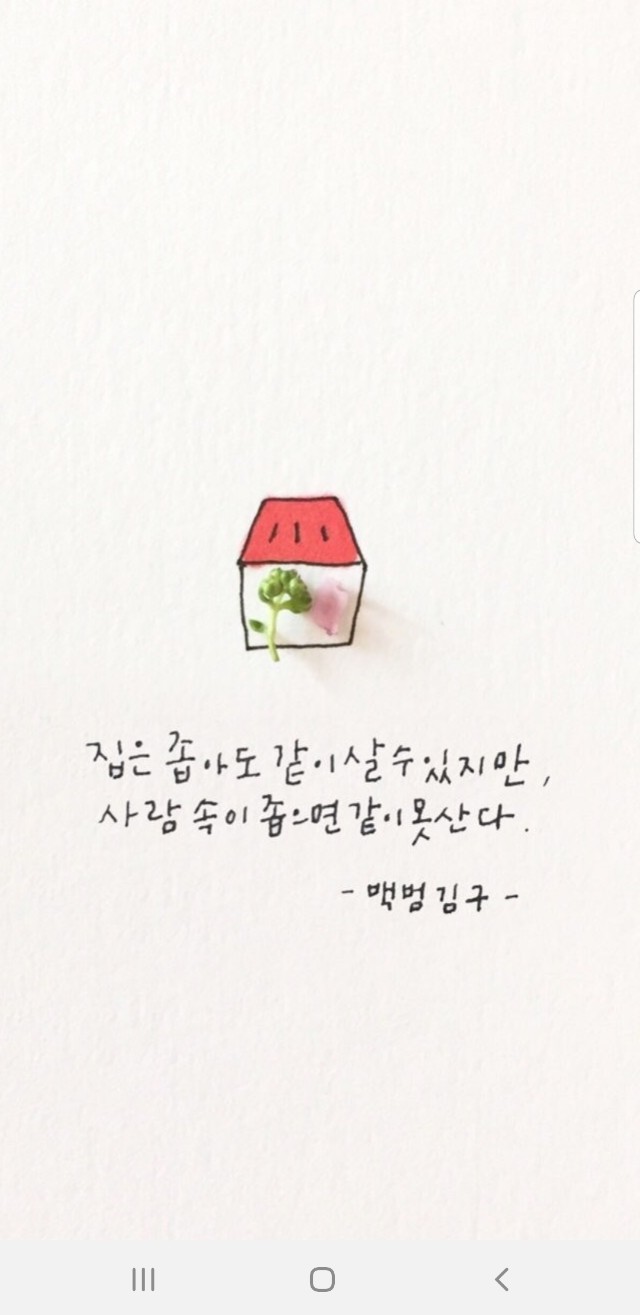 집은 좁아도 같이 살 수 있지만,
사람 속이 좁으면 같이 못 산다.
- 백범 김구 -